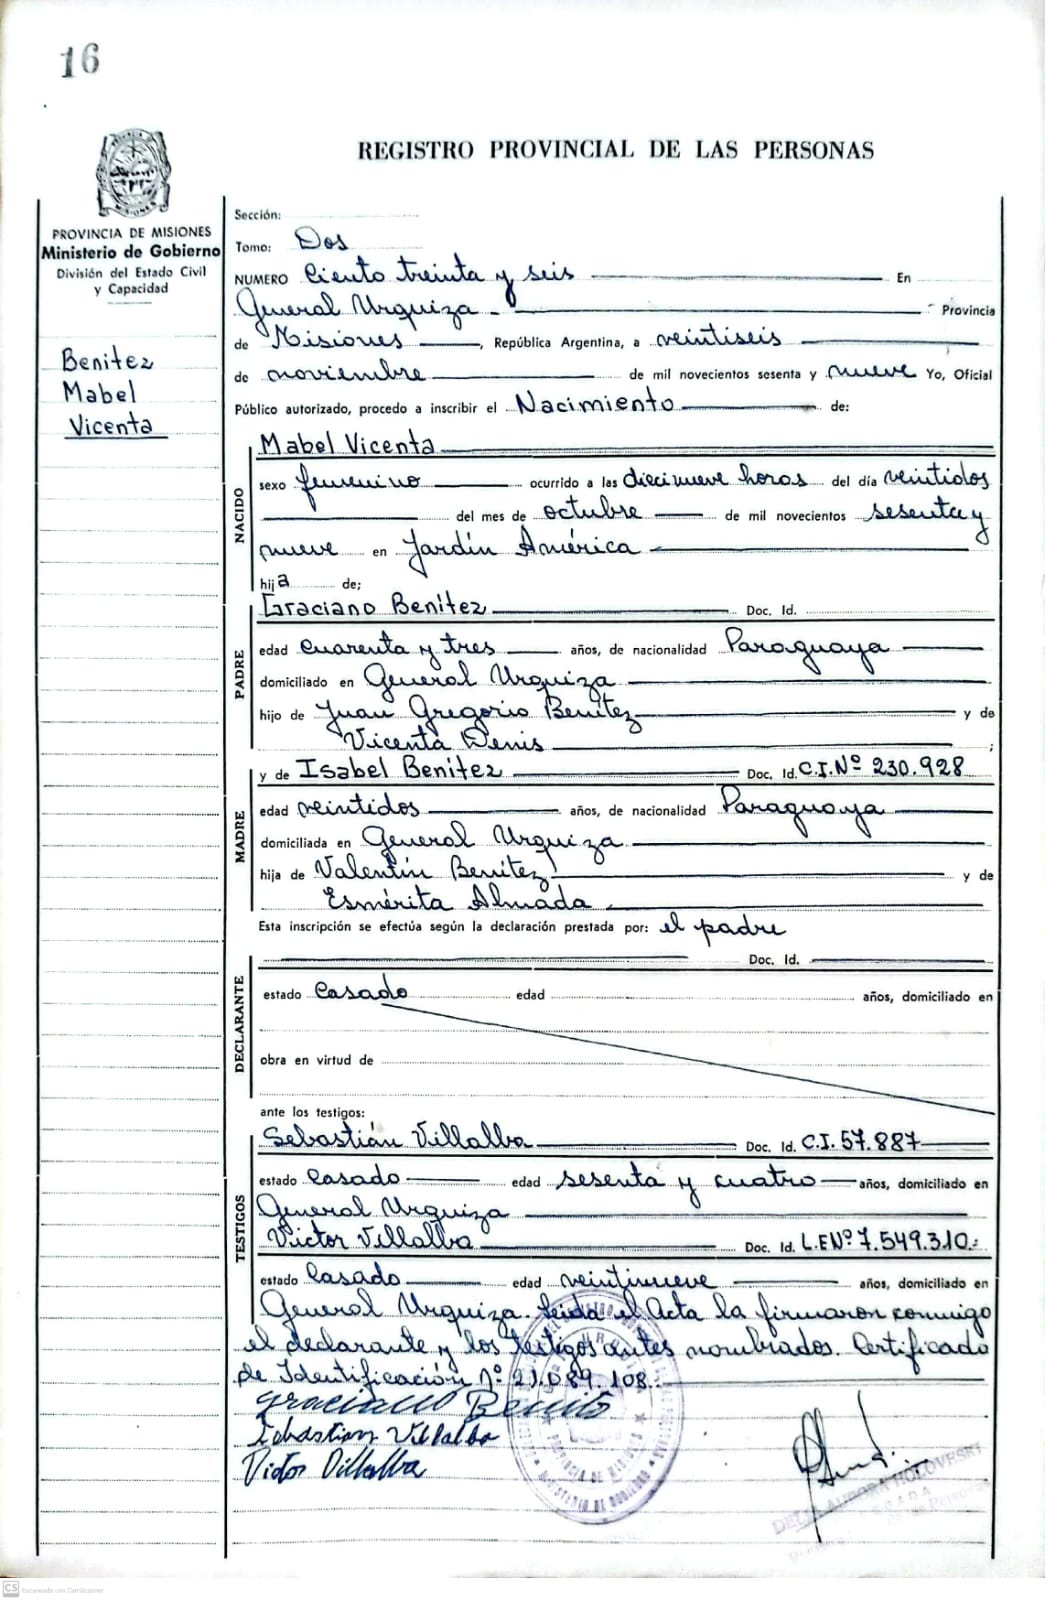 16
REGISTRO PROVINCIAL DE LAS PERSONAS
PROVINCIA DE MISIONES
Ministerio de Gobierno
División del Estado Civil
y Capacidad
Benitez
Mabel
Vicenta
Sección:
Tomo: Dos
NUMERO Ciento treinta y seis En
General Urquiza - Provincia
de Misiones, República Argentina, a veintiseis
de noviembre de mil novecientos sesenta y nueve Yo, Oficial
Público autorizado, procedo a inscribir el Nacimiento de:
NACIDO
Mabel Vicenta
sexo femenino ocurrido a las diecinueve horas del día veintidos
del mes de octubre de mil novecientos sesenta y
nueve en Jardín América
hija de;
PADRE
Graciano Benitez Doc. Id.
edad cuarenta y tres años, de nacionalidad Paraguaya
domiciliado en General Urquiza
hijo de Juan Gregorio Benitez y de
Vicenta Denis ;
MADRE
y de Isabel Benitez Doc. Id. C.I. Nº 230.928
edad veintidos años, de nacionalidad Paraguaya
domiciliada en General Urquiza
hija de Valentín Benitez y de
Esmérita Almada.
Esta inscripción se efectúa según la declaración prestada por: el padre
DECLARANTE
Doc. Id.
estado Casado edad años, domiciliado en
obra en virtud de
ante los testigos:
TESTIGOS
Sebastián Villalba Doc. Id. C.I. 57.887
estado Casado edad sesenta y cuatro años, domiciliado en
General Urquiza
Victor Villalba Doc. Id. L.E Nº 7.549.310.-
estado Casado edad veintinueve años, domiciliado en
General Urquiza. Leida el Acta la firmaron conmigo
el declarante y los testigos antes nombrados. Certificado
de Identificación Nº 21.089.108.-
Graciano Benito
Sebastian Villalba
Victor Villalba
PROVINCIA DE MISIONES
MINISTERIO DE GOBIERNO
DELIA AURORA HOLOVESKI
CS Escaneado con CamScanner